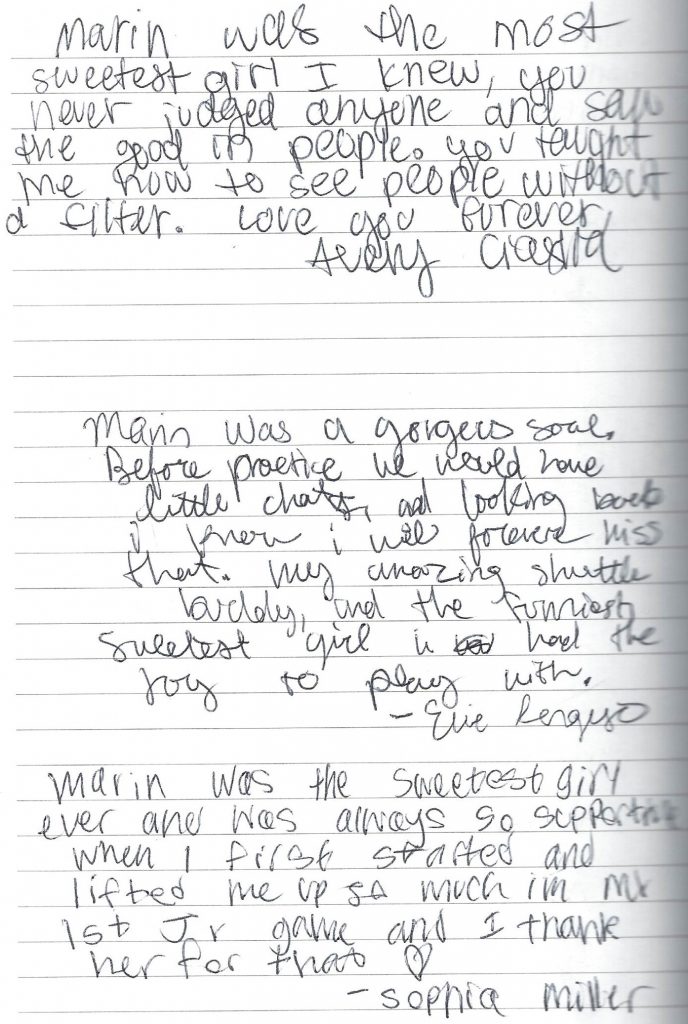 Marin was the most
sweetest girl I knew, you
never judged anyone and saw
the good in people. you taught
me how to see people without
a filter. Love you furever,
Avery
Marin was a gorgeous soul.
Before practice we would have
little chats, and looking back
i know i will forever miss
that. My amazing shuttle
buddy, and the funniest,
sweetest girl i had the
joy to play with.
- Evie
Marin was the sweetest girl
ever and was always so supportive
when I first started and
lifted me up so much in my
1st Jr game and I thank
her for that ♡
- Sophia Miller